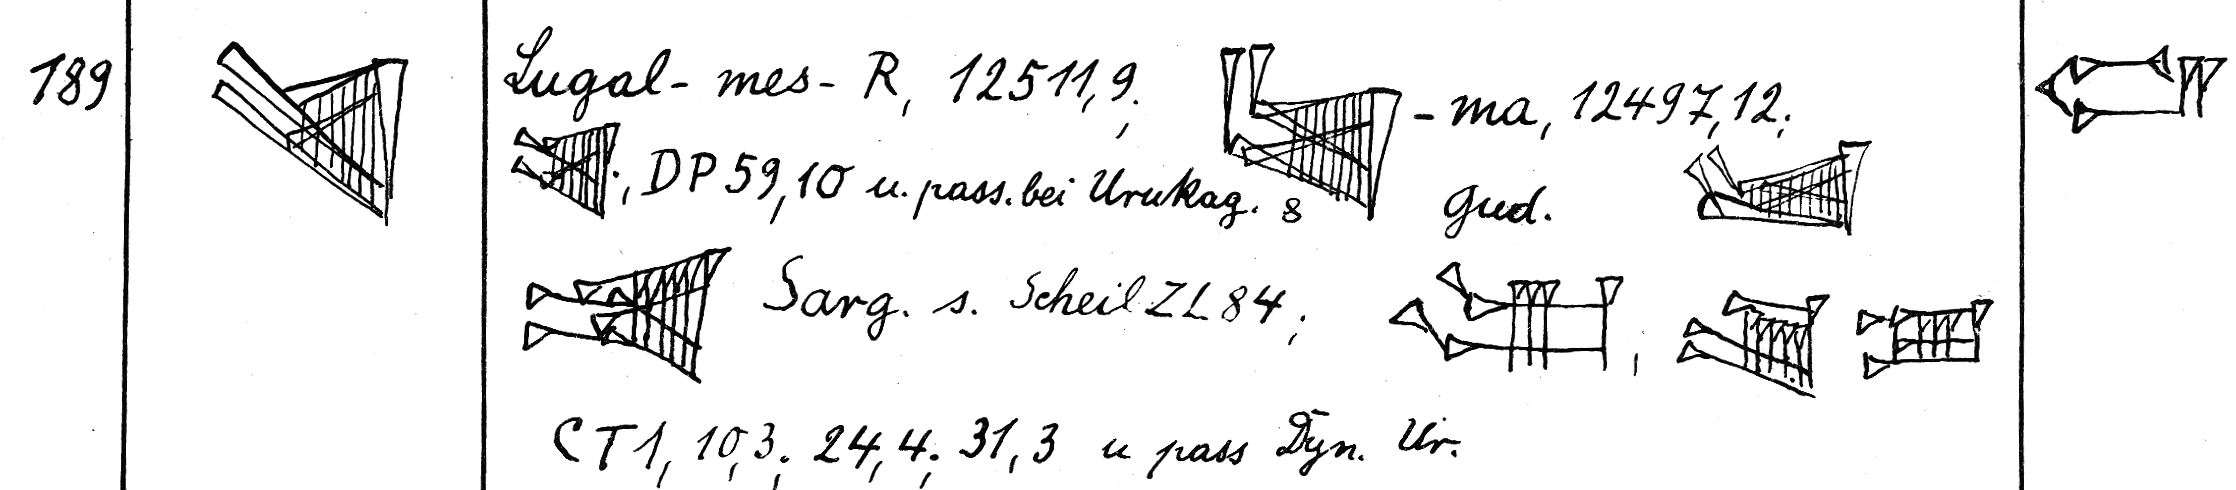 189
Lugal-mes-R, 12511,9; -ma, 12497,12;
, DP 59,10 u. pass. bei Urukag. 8 Gud.
Sarg. s. Scheil ZL 84; ,
CT 1, 10,3; 24,4; 31,3 u pass Dyn. Ur.